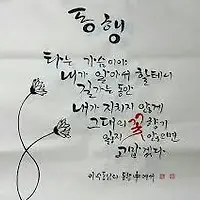 동행
타는 가슴이야
내가 알아서 할테니
길가는 동안
내가 지치지 않게
그대의 꽃향기
잃지 않으면
고맙겠다